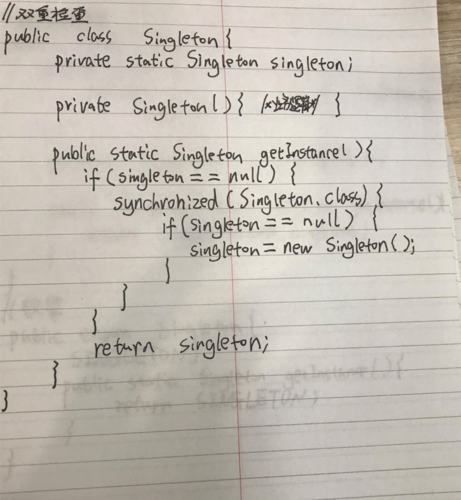 //双重检查
public class Singleton {
private static Singleton singleton;
private Singleton() { }
public static Singleton getInstance() {
if (singleton == null) {
synchronized (Singleton.class) {
if (singleton == null) {
singleton = new Singleton();
}
}
}
return singleton;
}
}